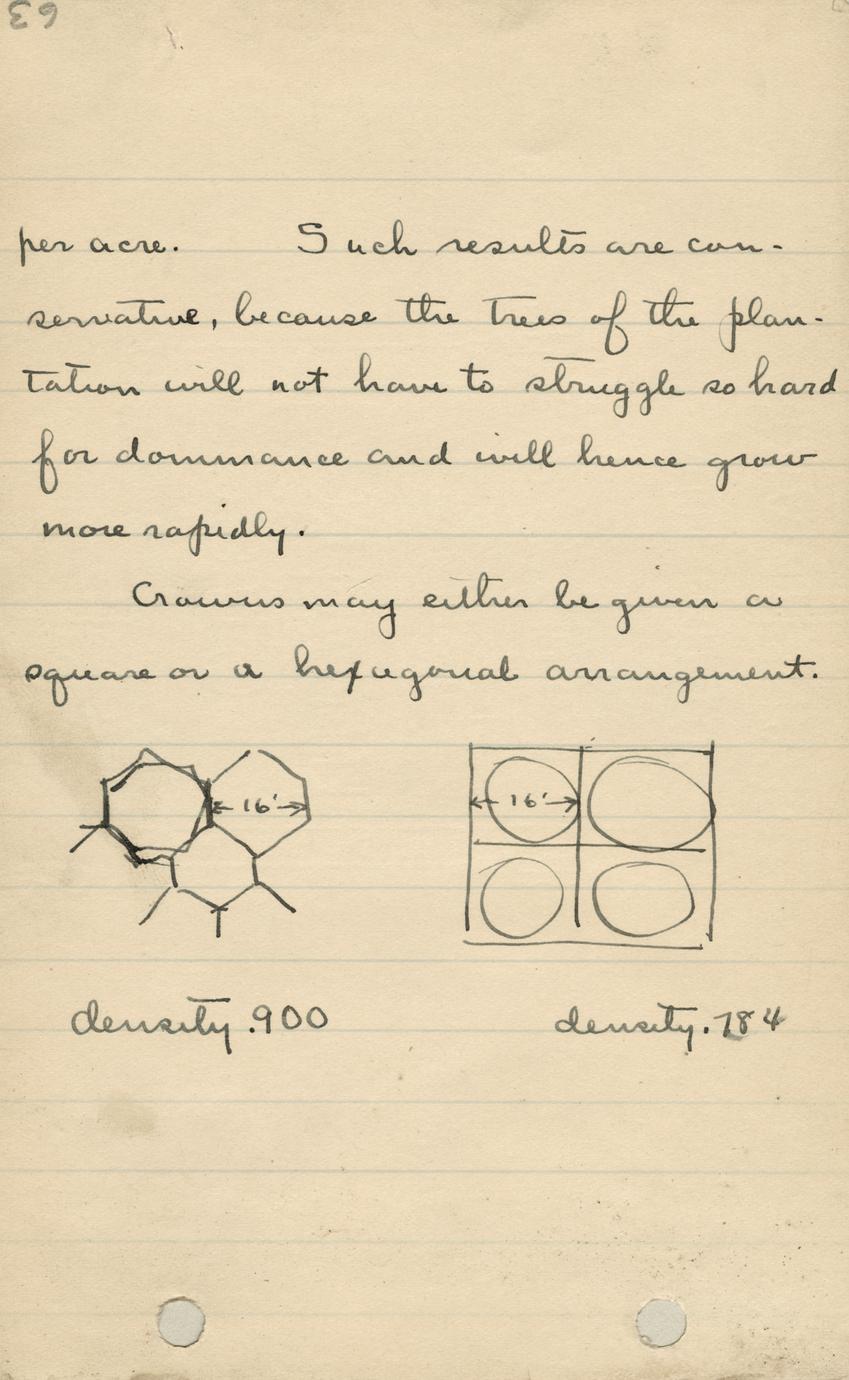 63
per acre. Such results are con-
servative, because the trees of the plan-
tation will not have to struggle so hard
for dominance and will hence grow
more rapidly.
Crowns may either be given a
square or a hexagonal arrangement.
16'
16'
density .900
density .784